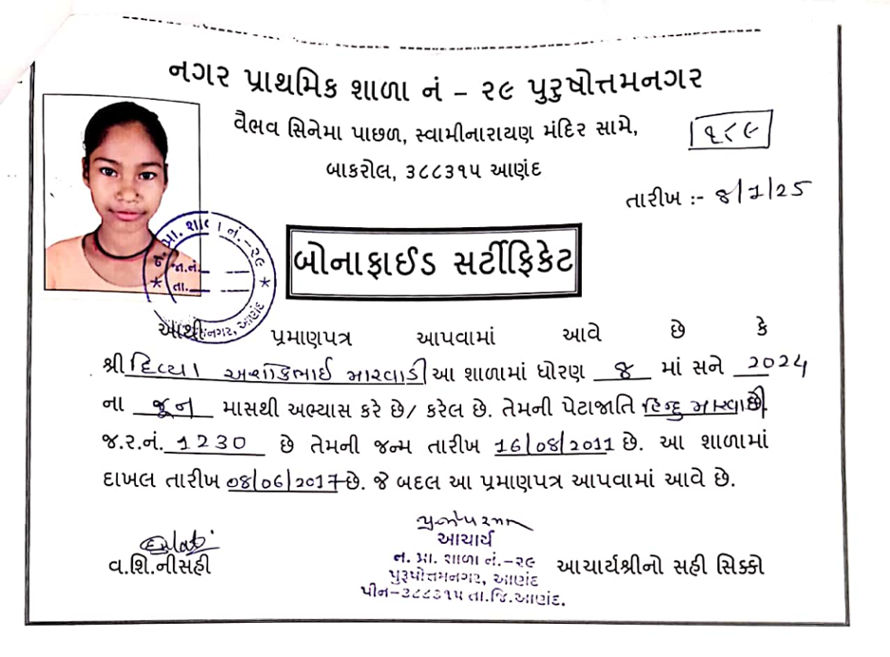 નગર પ્રાથમિક શાળા નં - ૨૯ પુરુષોત્તમનગર
વૈભવ સિનેમા પાછળ, સ્વામીનારાયણ મંદિર સામે,
૧૮૯
બાકરોલ, ૩૮૮૩૧૫ આણંદ
તારીખ :- ૪/1/25
ન. પ્રા. શાળા નં.-૨૯
જા.નં.
તા.
નગર, આણંદ
બોનાફાઈડ સર્ટીફિકેટ
આથી પ્રમાણપત્ર આપવામાં આવે છે કે
શ્રી દિવ્યા અશોકભાઈ મારવાડી આ શાળામાં ધોરણ ૮ માં સને 2024
ના જૂન માસથી અભ્યાસ કરે છે/ કરેલ છે. તેમની પેટાજાતિ હિન્દુ મારવાડી છે.
જ.ર.નં. 1230 છે તેમની જન્મ તારીખ 16/08/2011 છે. આ શાળામાં
દાખલ તારીખ 08/06/2017 છે. જે બદલ આ પ્રમાણપત્ર આપવામાં આવે છે.
વ.શિ.નીસહી
આચાર્ય
ન. પ્રા. શાળા નં.-૨૯
પુરૂષોત્તમનગર, આણંદ
પીન-૩૮૮૩૧૫ તા.જિ.આણંદ.
આચાર્યશ્રીનો સહી સિક્કો